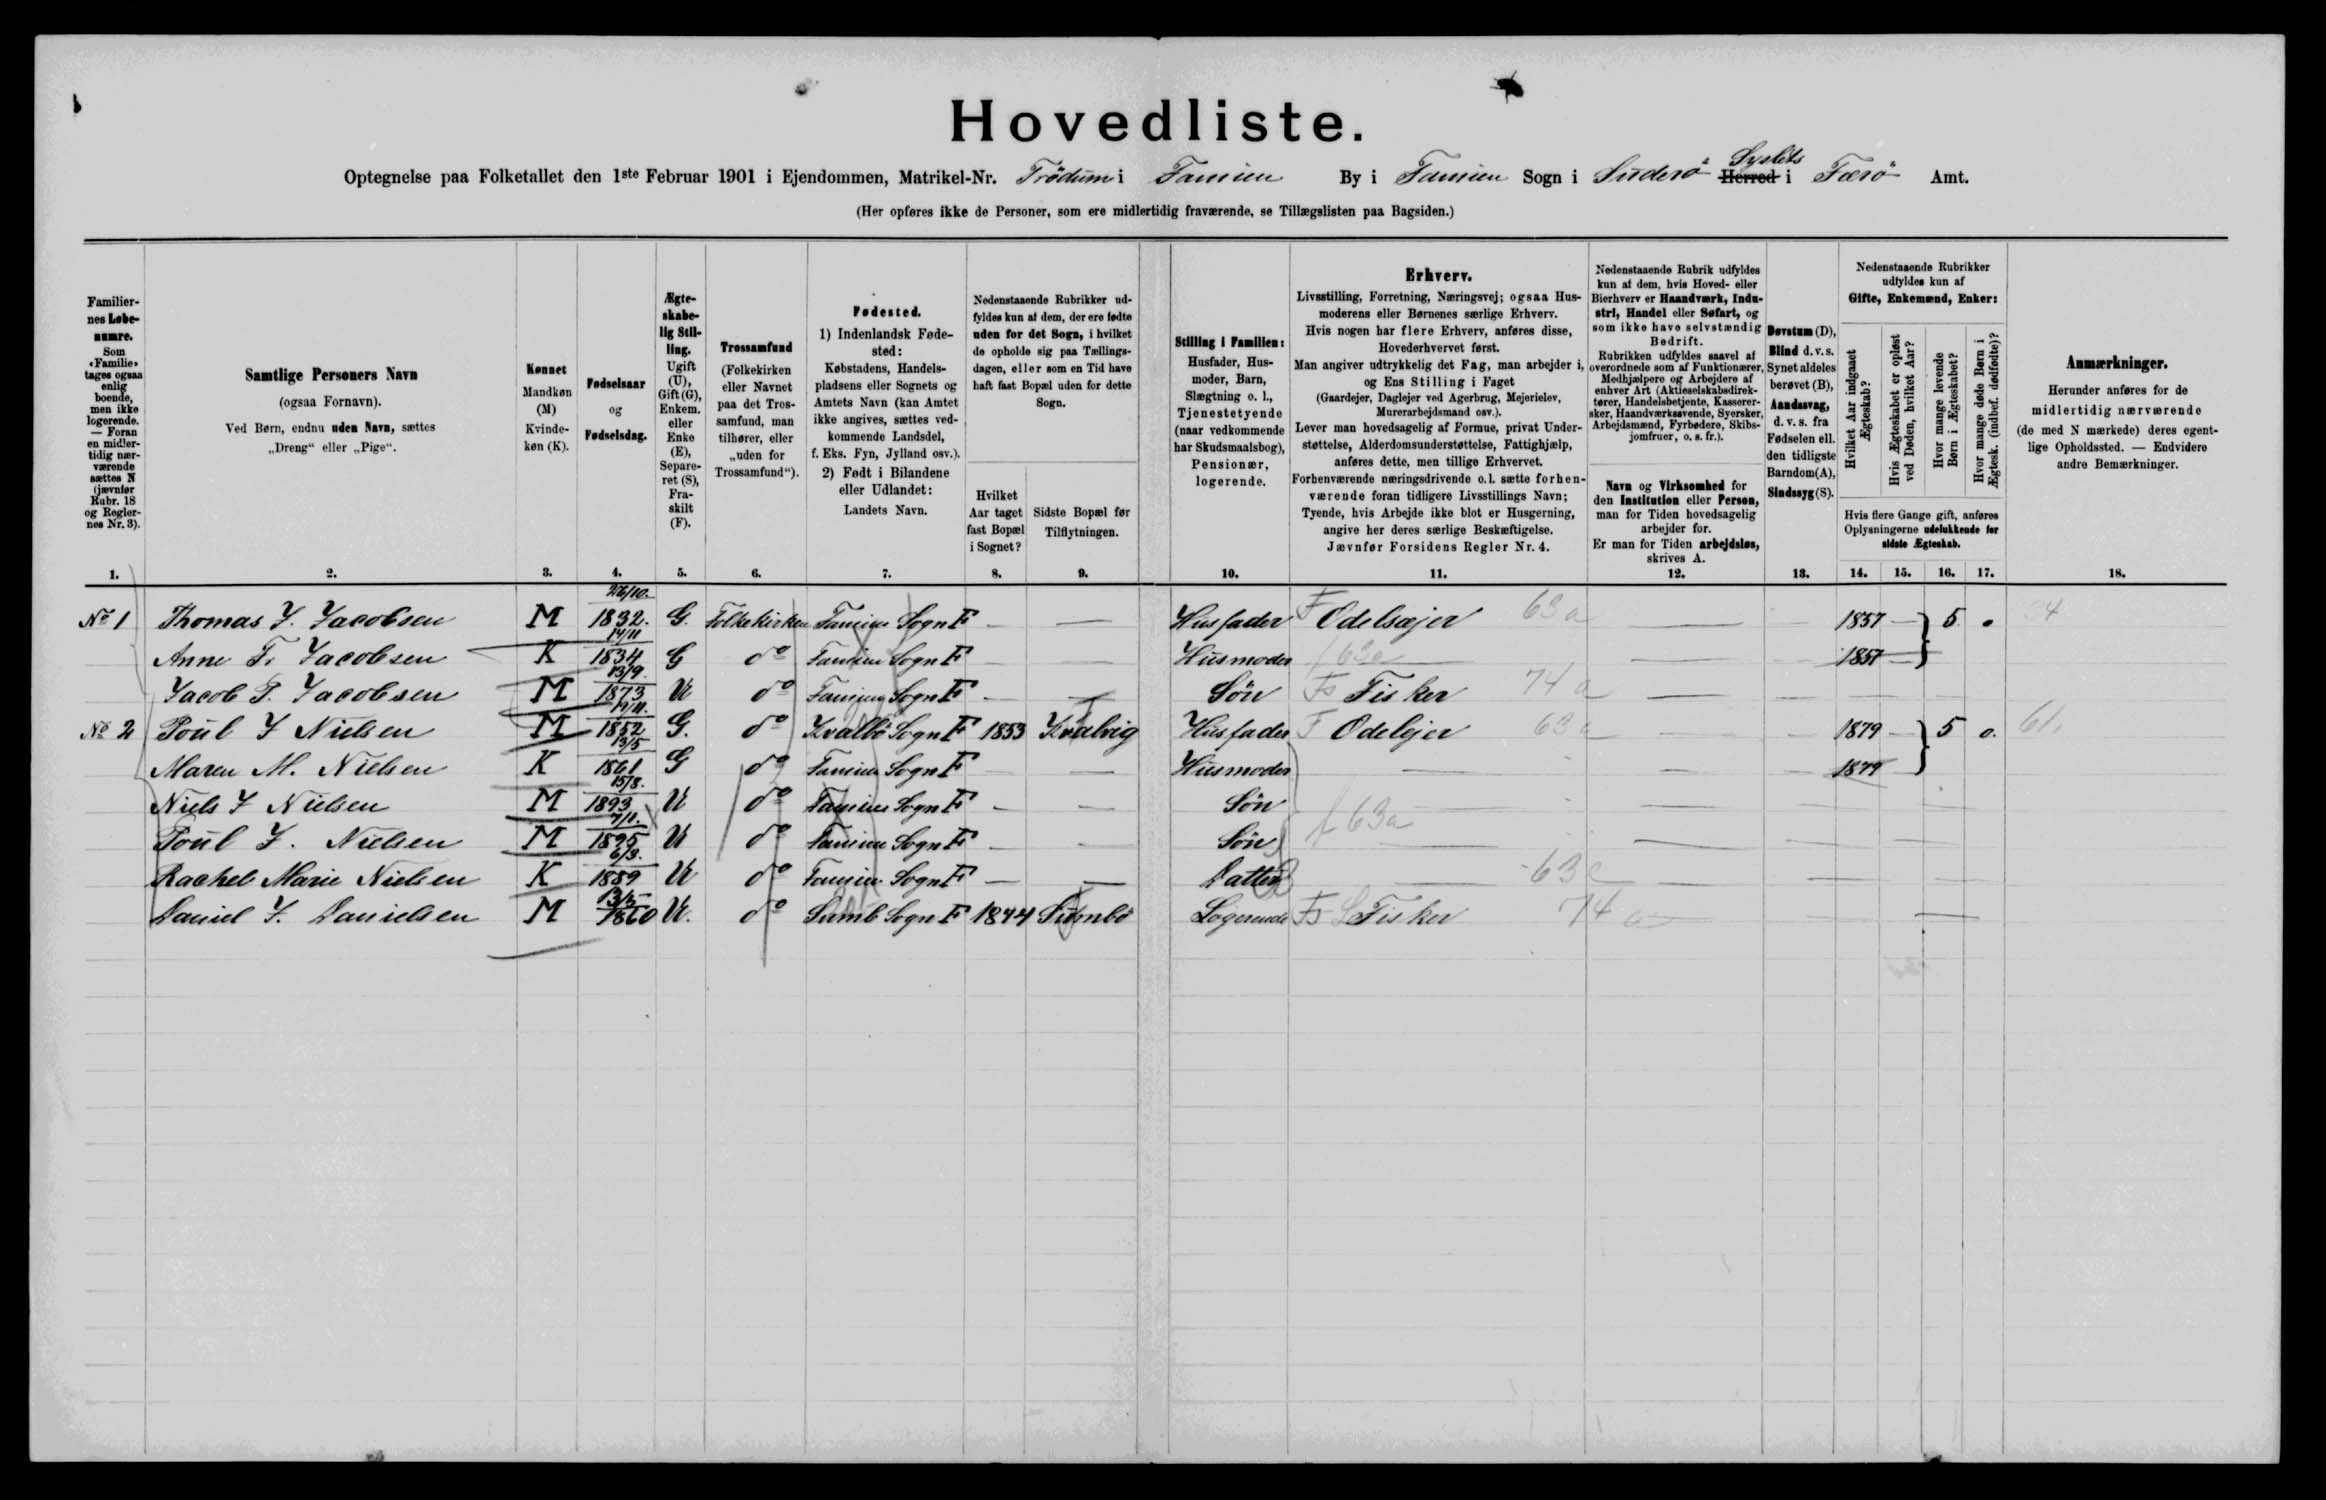 Hovedliste.
Optegnelse paa Folketallet den 1ste Februar 1901 i Ejendommen, Matrikel-Nr. Trödum i Famien By i Famien Sogn i Suderø Syslets Herred i Færø Amt.
(Her opføres ikke de Personer, som ere midlertidig fraværende, se Tillægslisten paa Bagsiden.)
Familiernes Løbenumre.
Som «Familie» tages ogsaa enlig boende, men ikke logerende. — Foran en midlertidig nærværende sættes N (jævnfør Rubr. 18 og Reglernes Nr. 3).
Samtlige Personers Navn
(ogsaa Fornavn).
Ved Børn, endnu uden Navn, sættes
„Dreng“ eller „Pige“.
Kønnet
Mandkøn (M)
Kvindekøn (K).
Fødselsaar
og
Fødselsdag.
Ægteskabelig Stilling.
Ugift (U), Gift (G), Enkem. eller Enke (E), Separeret (S), Fraskilt (F).
Trossamfund
(Folkekirken eller Navnet paa det Trossamfund, man tilhører, eller „uden for Trossamfund“).
Fødested.
1) Indenlandsk Fødested:
Købstadens, Handelspladsens eller Sognets og Amtets Navn (kan Amtet ikke angives, sættes vedkommende Landsdel, f. Eks. Fyn, Jylland osv.).
2) Født i Bilandene eller Udlandet:
Landets Navn.
Nedenstaaende Rubrikker udfyldes kun af dem, der ere fødte uden for det Sogn, i hvilket de opholde sig paa Tællingsdagen, eller som en Tid have haft fast Bopæl uden for dette Sogn.
Hvilket Aar taget fast Bopæl i Sognet?
Sidste Bopæl før Tilflytningen.
Stilling i Familien:
Husfader, Husmoder, Barn, Slægtning o. l., Tjenestetyende (naar vedkommende har Skudsmaalsbog), Pensionær, logerende.
Erhverv.
Livsstilling, Forretning, Næringsvej; ogsaa Husmoderens eller Børnenes særlige Erhverv.
Hvis nogen har flere Erhverv, anføres disse, Hovederhvervet først.
Man angiver udtrykkelig det Fag, man arbejder i, og Ens Stilling i Faget
(Gaardejer, Daglejer ved Agerbrug, Mejerielev, Murerarbejdsmand osv.).
Lever man hovedsagelig af Formue, privat Understøttelse, Alderdomsunderstøttelse, Fattighjælp, anføres dette, men tillige Erhvervet.
Forhenværende næringsdrivende o.l. sætte forhenværende foran tidligere Livsstillings Navn;
Tyende, hvis Arbejde ikke blot er Husgerning, angive her deres særlige Beskæftigelse.
Jævnfør Forsidens Regler Nr. 4.
Nedenstaaende Rubrik udfyldes kun af dem, hvis Hoved- eller Bierhverv er Haandværk, Industri, Handel eller Søfart, og som ikke have selvstændig Bedrift.
Rubrikken udfyldes saavel af overordnede som af Funktionærer, Medhjælpere og Arbejdere af enhver Art (Aktieselskabsdirektører, Handelsbetjente, Kasserersker, Haandværkssvende, Syersker, Arbejdsmænd, Fyrbødere, Skibsjomfruer, o. s. fr.).
Navn og Virksomhed for den Institution eller Person, man for Tiden hovedsagelig arbejder for.
Er man for Tiden arbejdsløs, skrives A.
Døvstum (D), Blind d. v. s. Synet aldeles berøvet (B), Aandssvag, d. v. s. fra Fødselen ell. den tidligste Barndom (A), Sindssyg (S).
Nedenstaaende Rubrikker udfyldes kun af
Gifte, Enkemænd, Enker:
Hvilket Aar indgaaet Ægteskab?
Hvis Ægteskabet er opløst ved Døden, hvilket Aar?
Hvor mange levende Børn i Ægteskabet?
Hvor mange døde Børn i Ægtesk. (indbef. dødfødte)?
Hvis flere Gange gift, anføres Oplysningerne udelukkende for sidste Ægteskab.
Anmærkninger.
Herunder anføres for de midlertidig nærværende (de med N mærkede) deres egentlige Opholdssted. — Endvidere andre Bemærkninger.
1. 2. 3. 4. 5. 6. 7. 8. 9. 10. 11. 12. 13. 14. 15. 16. 17. 18.
No 1 Thomas J. Jacobsen M 26/10. 1832. G. Folkekirken Famien Sogn F — — Husfader F Odelsejer 63 a — — 1857 — 5. 0 34
Anne F. Jacobsen K 14/11 1834 G do Famien Sogn F — — Husmoder f 63a — — 1857 —
Jacob P. Jacobsen M 13/9. 1873 U do Famien Sogn F — — Søn Fs Fisker 74 a — —
No 2 Poul J Nielsen M 19/11. 1852 G. do Kvalbø Sogn F 1853 Kvalvig Husfader F Odelejer 63 a — — 1879 — 5 0. 61.
Maren M. Nielsen K 13/5 1861 G do Famien Sogn F — — Husmoder — — — 1879 —
Niels J Nielsen M 15/8. 1893 U do Famien Sogn F — — Søn — — —
Poul J. Nielsen M 7/1. 1895 U do Famien Sogn F — — Søn f 63a — — —
Rachel Marie Nielsen K 6/3. 1889 U do Famien Sogn F — — Datter — 63 — —
Daniel J. Danielsen M 13/5 1860 U. do Sumb Sogn F 1874 Sumbø Logerende Fs Fisker 74 a —